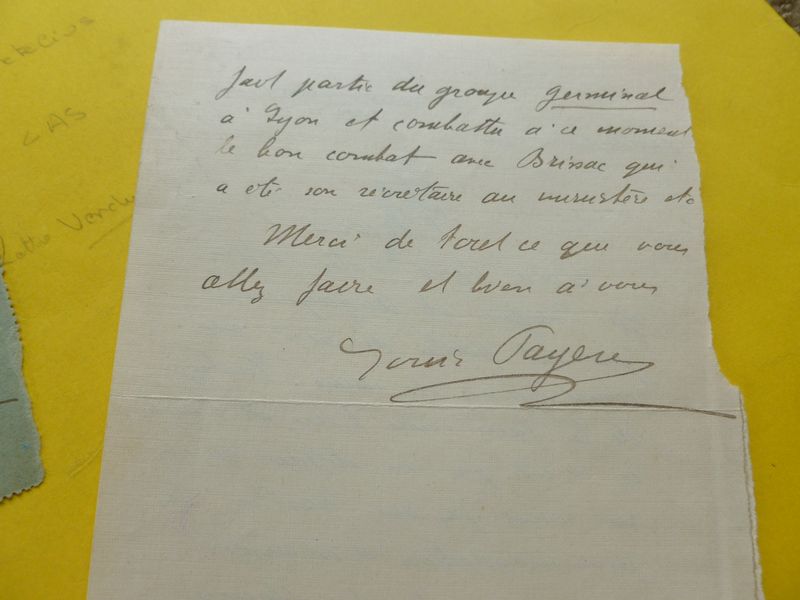 fait partie du groupe Germinal
à Lyon et combattu à ce moment
le bon combat avec Brissac qui
a été son secrétaire au ministère etc
Merci de tout ce que vous
allez faire et bien à vous
Louis Payen
LAS